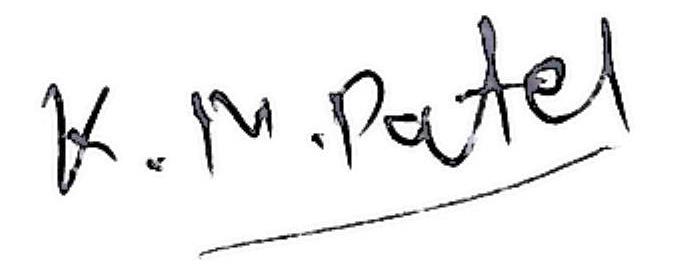 K. M. Patel